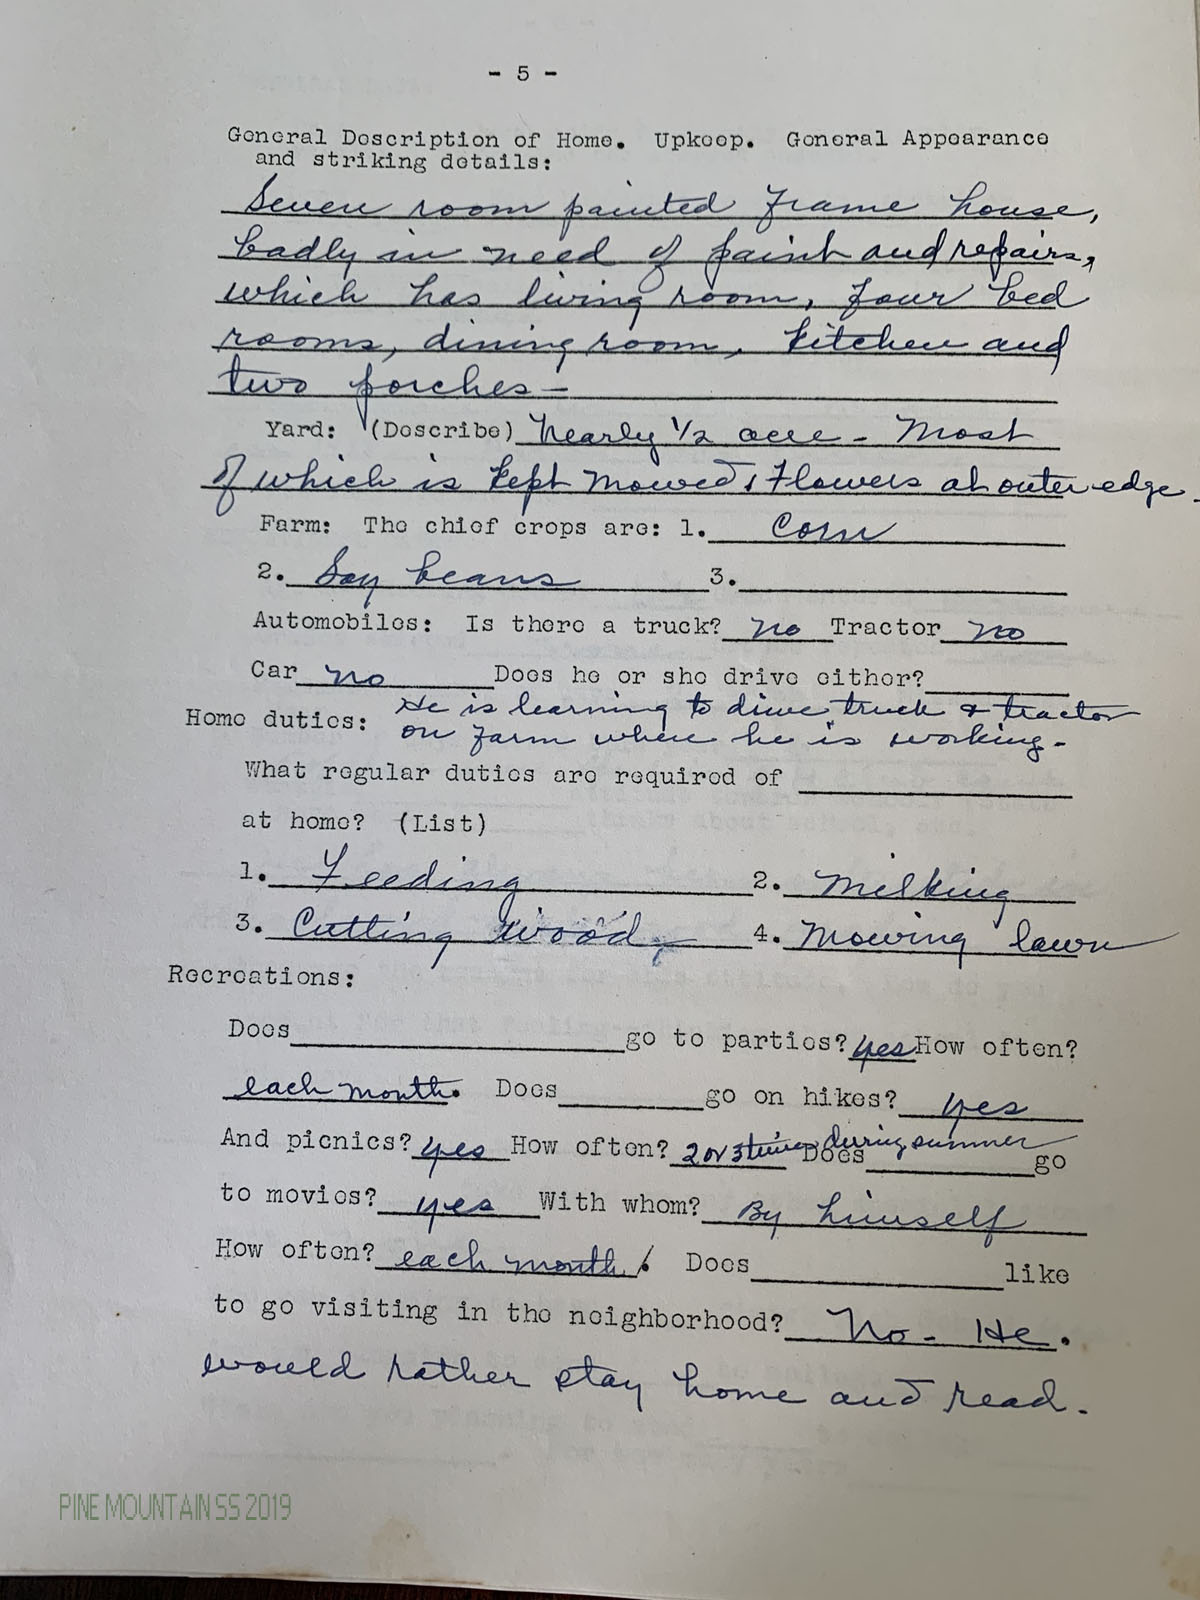 - 5 -
General Description of Home. Upkeep. General Appearance
and striking details:
Seven room painted frame house,
badly in need of paint and repairs,
which has living room, four bed
rooms, dining room, kitchen and
two porches -
Yard: (Describe) Nearly 1/2 acre - Most
of which is kept mowed, Flowers at outer edge.
Farm: The chief crops are: 1. Corn
2. Soy beans 3.
Automobiles: Is there a truck? no Tractor no
Car no Does he or she drive either?
Home duties: He is learning to drive truck & tractor
on farm where he is working.
What regular duties are required of
at home? (List)
1. Feeding 2. Milking
3. Cutting wood, 4. Mowing lawn
Recreations:
Does go to parties? yes How often?
each month. Does go on hikes? yes
And picnics? yes How often? 2 or 3 times during summer Does go
to movies? yes With whom? By himself
How often? each month. Does like
to go visiting in the neighborhood? No - He.
would rather stay home and read.
PINE MOUNTAIN SS 2019